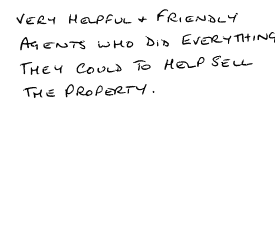 VERY HELPFUL & FRIENDLY
AGENTS WHO DID EVERYTHING
THEY COULD TO HELP SELL
THE PROPERTY.